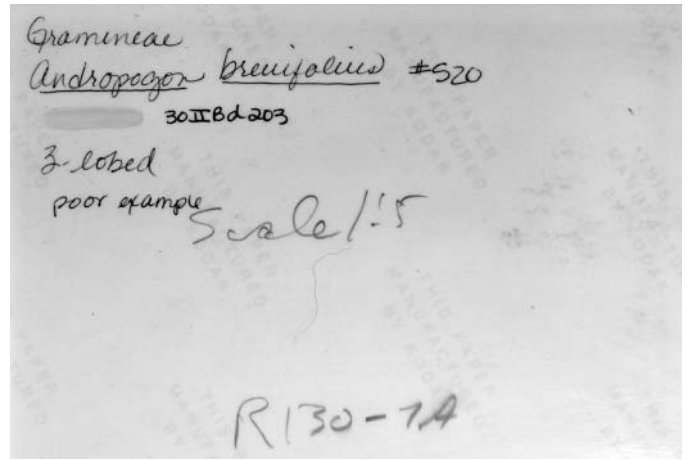 Gramineae
Andropogon brevifolius #520
30IIBd203
3-lobed
poor example
Scale 1:5
R130-7A
THIS PAPER
MANUFACTURED
BY KODAK